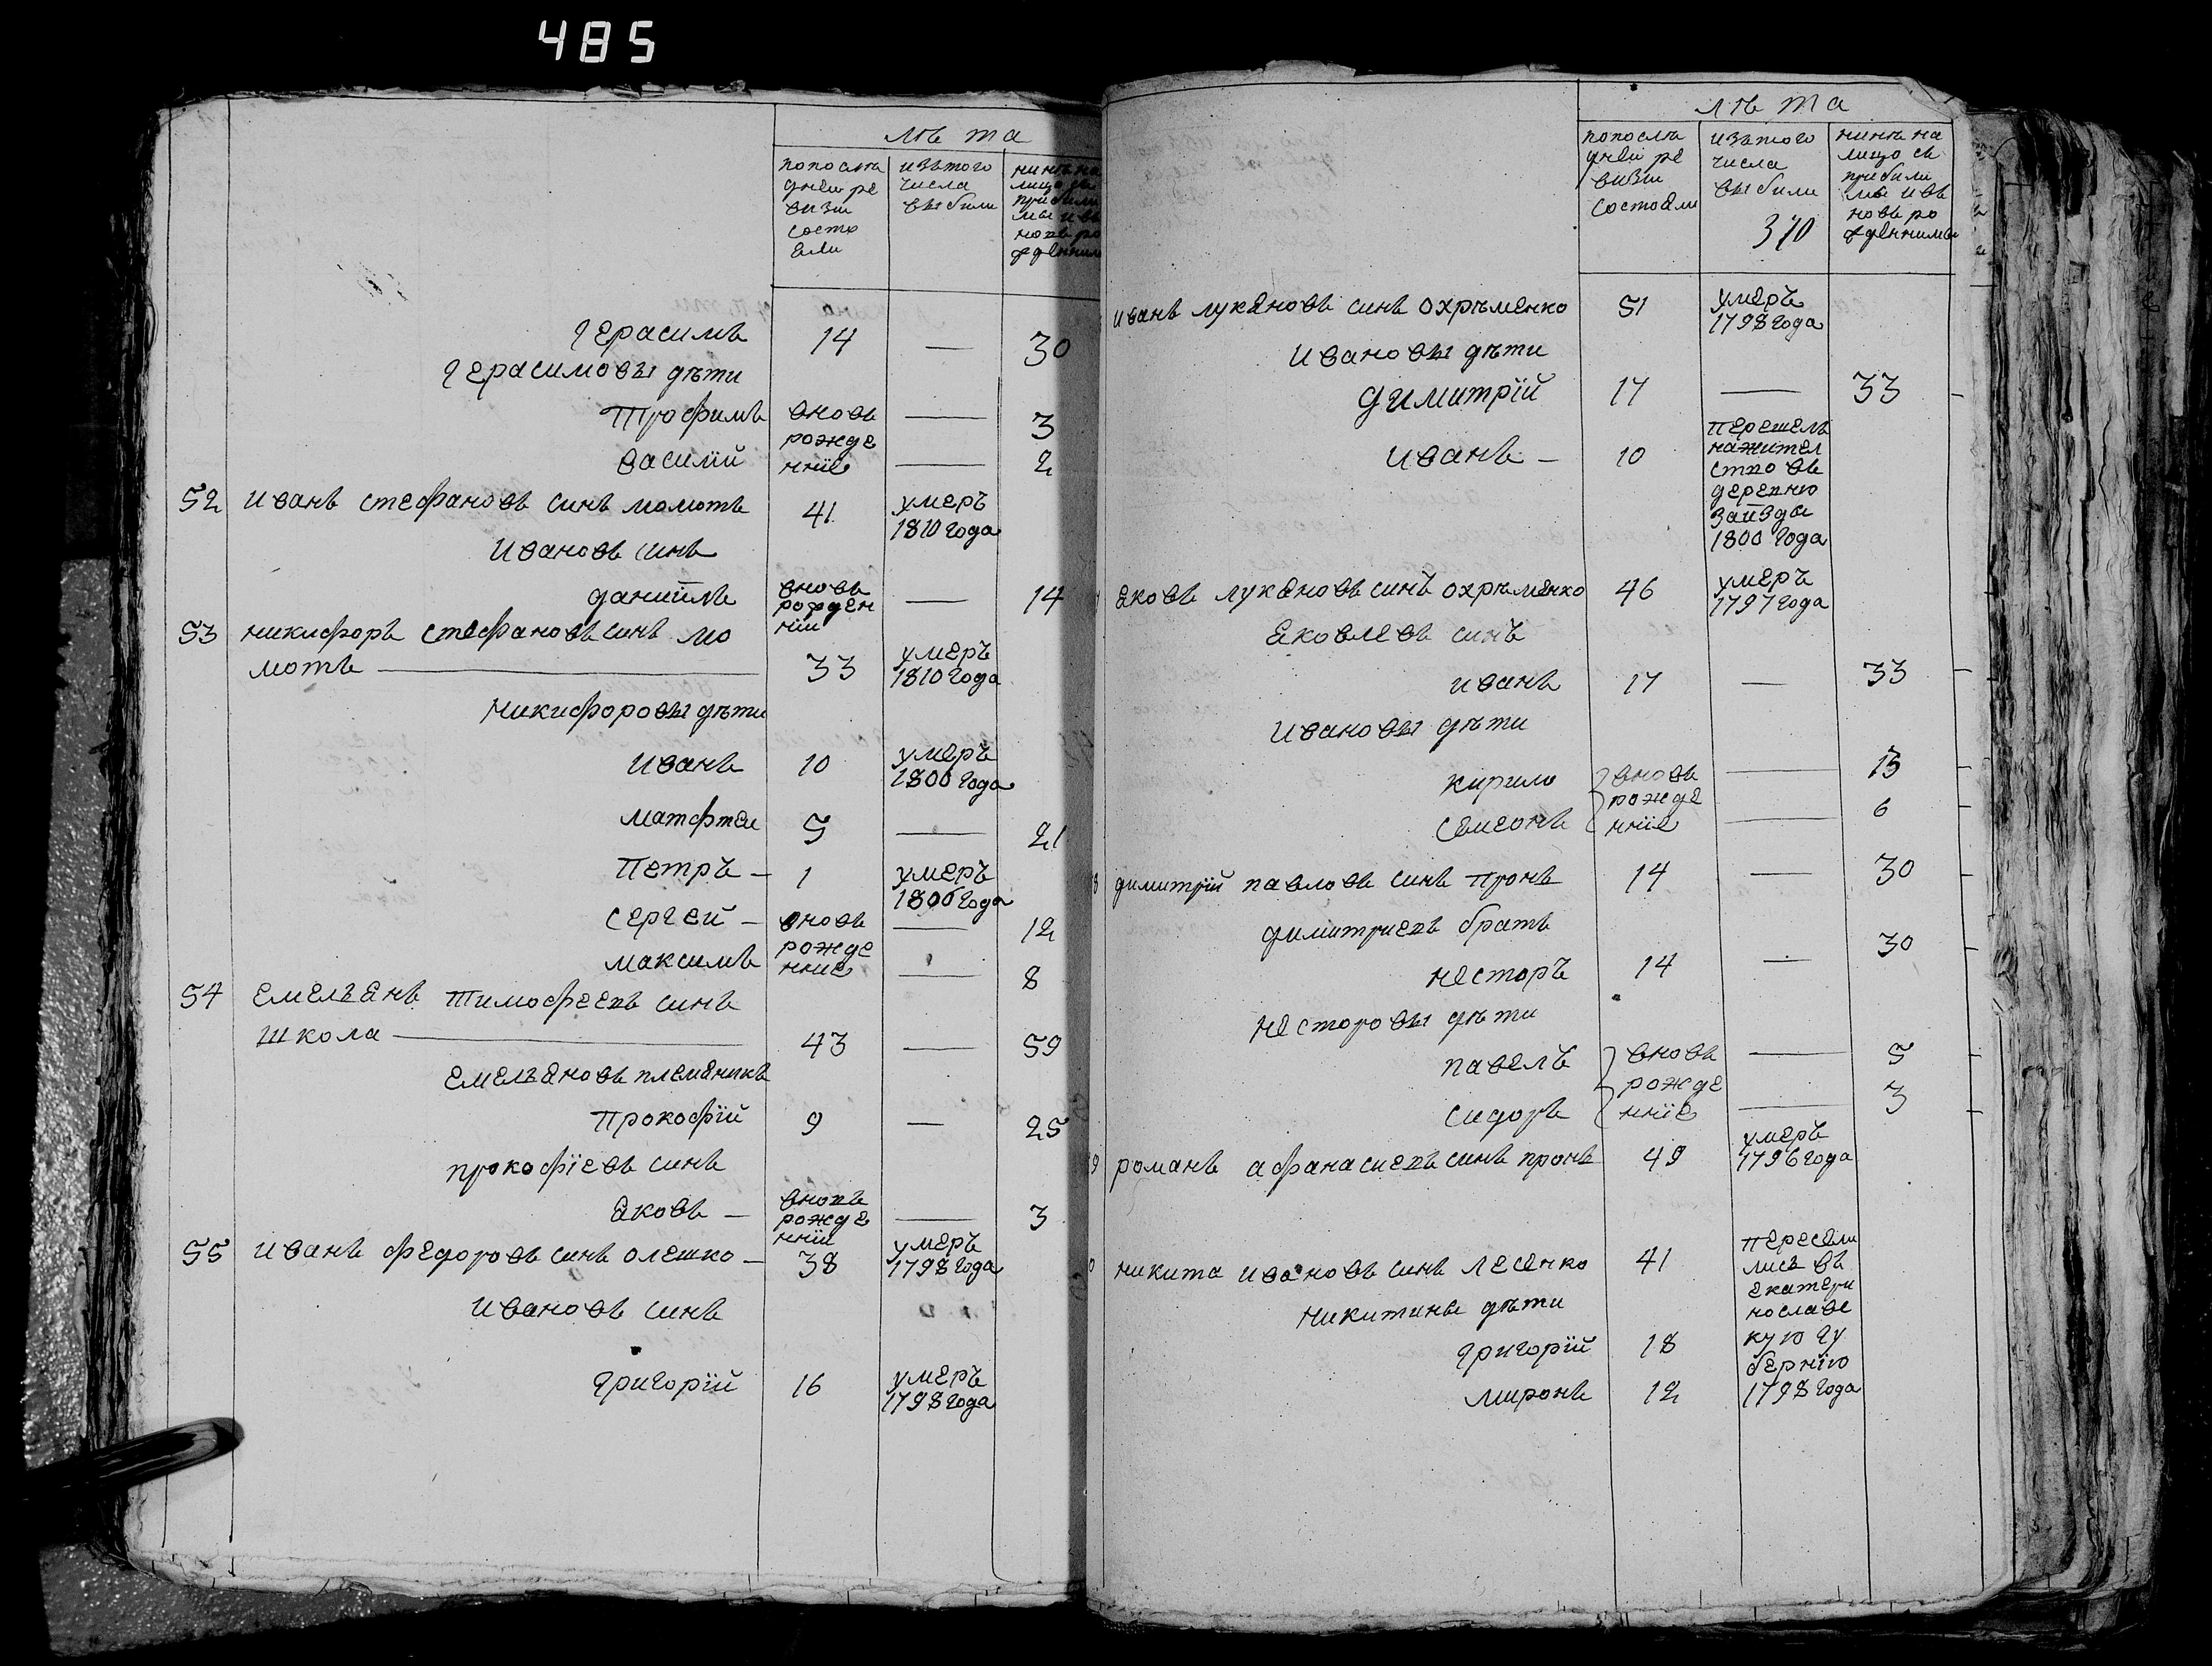 485
лѣта
попослѣ
дней ре
визи
состо
яли
изътого
числа
выбили
нинѣ на
лицо съ
прибили
ми и въ
новь ро
жденними
герасимъ 14 — 30
герасимовы дѣти
трофимъ вновь — 3
рожде
василій нніе — 2
52 иванъ стефановъ синъ момотъ 41 умеръ
1810 года
ивановъ синъ
даніилъ вновь — 14
рожден
ній
53 никифоръ стефановъ синъ мо
мотъ — 33 умеръ
1810 года
никифоровы дѣти
иванъ 10 умеръ
1800 года
матфѣй 5 — 21
петръ — 1 умеръ
1806 года
сергей — вновь — 12
рожде
максимъ нние — 8
54 емельянъ тимофеевъ синъ
школа — 43 — 59
емельяновъ племяникъ
прокофій 9 — 25
прокофіевъ синъ
яковъ — вновь — 3
рожде
нній
55 иванъ федоровъ синъ олешко — 38 умеръ
1798 года
ивановъ синъ
григорій 16 умеръ
1798 года
лѣта
попослѣ
дней ре
визи
состояли
изътого
числа
выбили
370
нинѣ на
лицо съ
прибили
ми и въ
новь ро
жденними
иванъ лукяновъ синъ охрѣменко 51 умеръ
1798 года
ивановы дѣти
димитрій 17 — 33
иванъ — 10 перешелъ
нажител
ство въ
деревню
заѣзды
1800 года
яковъ лукяновъ синъ охрѣменко 46 умеръ
1797 года
яковлевъ синъ
иванъ 17 — 33
ивановы дѣти
кирило вновь — 13
рожде
семеонъ нніе — 6
8 димитрій павловъ синъ пронь 14 — 30
димитриевъ братъ
несторъ 14 — 30
несторовы дѣти
павелъ вновь — 5
рожде
сидоръ нніе — 3
9 романъ афанасиевъ синъ пронь 49 умеръ
1796 года
0 никита ивановъ синъ лесенко 41 пересели
лись въ
екатери
никитины дѣти нославс
григорій 18 кую гу
бернію
миронъ 12 1798 года